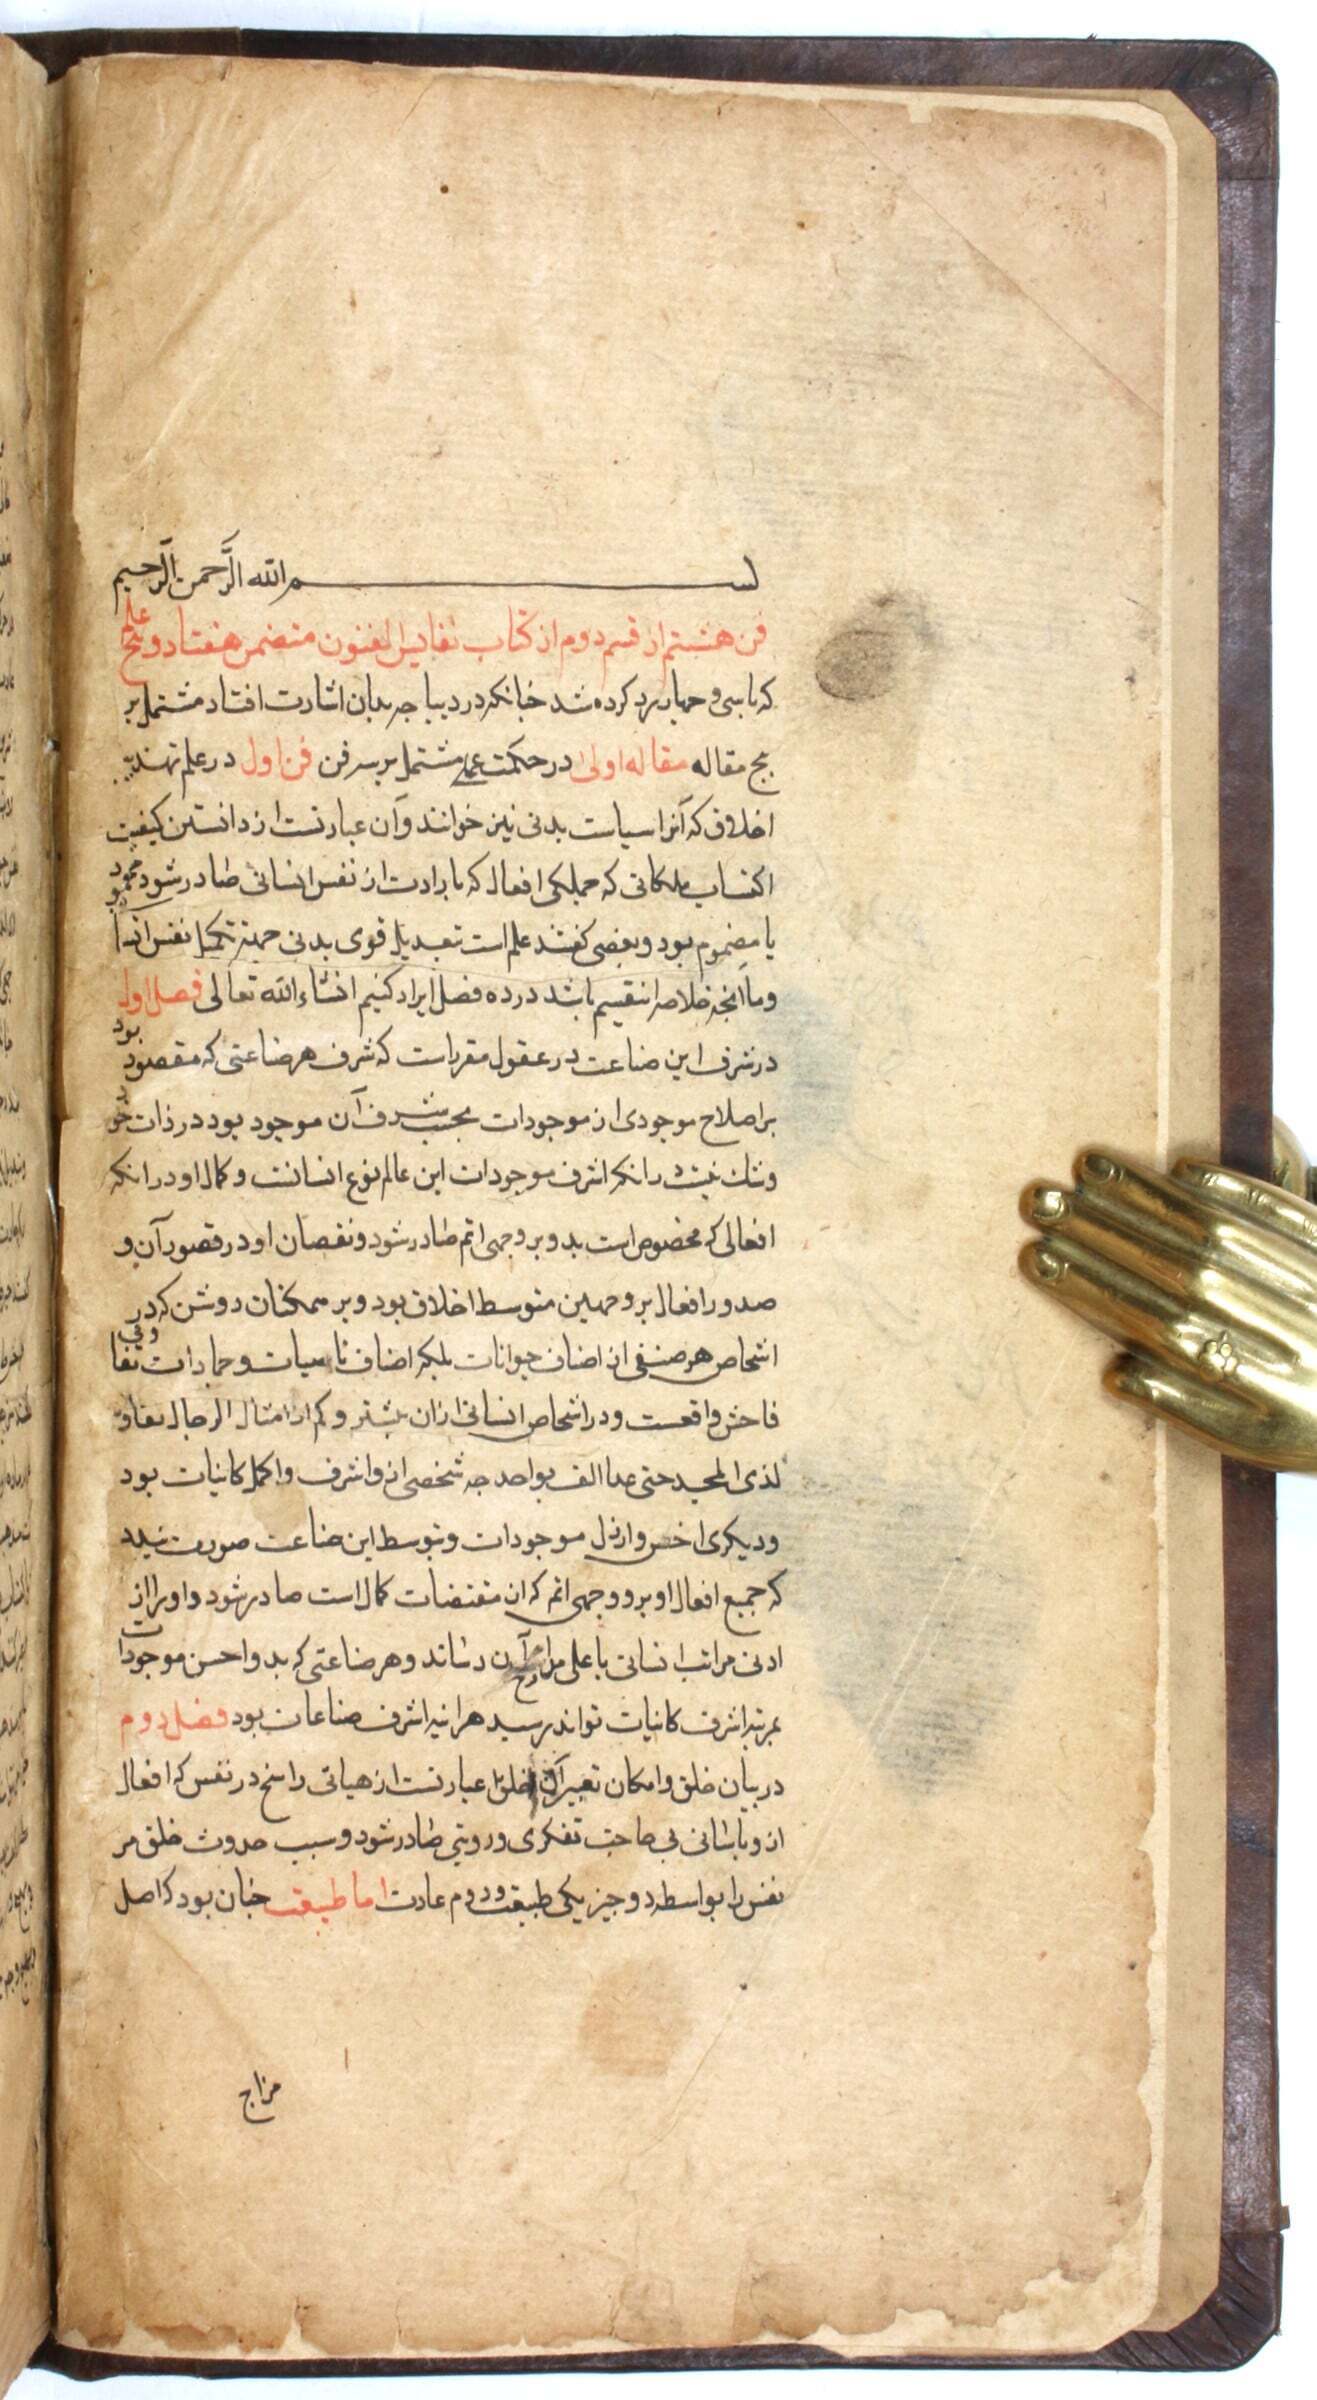 بسم الله الرَّحمن الرَّحیم
فن هشتم از قسم دوم از کتاب نفایس الفنون متضمن هفتاد و پنج علم
که با سی و چهار برد کرده شد خبانکه در دیباجه بدان اشارت افتاد مشتمل بر
پنج مقاله مقاله اولی در حکمت عملی مشتمل بر سه فن فن اول در علم تهذیب
اخلاق که آنرا سیاست بدنی نیز خوانند و آن عبارتست از دانستن کیفیت
اکتساب ملکاتی که جملکی افعال که بارادت از نفس انسانی صادر شود محمود بود
یا مذموم بود و بعضی کفتند علم است تبعدیل قوی بدنی جهة تکمیل نفس انسانی
و ما آنچه خلاصه این قسم باشد در ده فصل ایراد کنیم انشاء الله تعالی فصل اول
در شرف این صناعت در عقول مقررست که شرف هر صناعتی که مقصود بود
بر اصلاح موجودی از موجودات بحسب شرف آن موجود بود در ذات خود
و شک نیست درانکه اشرف موجودات این عالم نوع انسانست و کمال او درانکه
افعالی که مخصوص است بدو بر وجهی اتم صادر شود و نقصان او در قصور آن و
صدور افعال بر وجهین متوسط اخلاق بود و بر همکنان روشن که در
اشخاص هر صنفی از اصناف حیوانات بلکه اصناف نامیات و جمادات تفاوتی
فاحش واقعست و در اشخاص انسانی ازان بیشتر و کم ار امثال الرجال تفاوت
لذی المجد حتی عد الف بواحد چه شخصی ازو اشرف و اکمل کاینات بود
و دیکری اخس و ارذل موجودات و بتوسط این صناعت صورت بندد
که جمیع افعال او برو وجهی اتم که ان مقتضات کمال است صادر شود و او را از
ادنی مراتب انسانی باعلی مدارج آن رساند و هر صناعتی که بدو احسن موجودات
بمرتبه اشرف کاینات تواند رسید هراینه اشرف صناعات بود فصل دوم
در بیان خلق و امکان تغییر آن خلق عبارتست از هیاتی راسخ در نفس که افعال
ازو باسانی بی حاجت تفکری و رویتی صادر شود و سبب حدوث خلق مر
نفس را بواسطه دو چیز یکی طبیعت و دوم عادت اما طبیعت چنان بود که اصل
مزاج